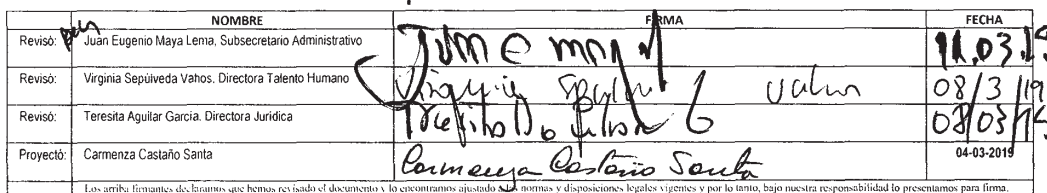 NOMBRE FIRMA FECHA
Revisó: Juan Eugenio Maya Lema, Subsecretario Administrativo 11.03.19
Revisó: Virginia Sepúlveda Vahos. Directora Talento Humano Virginia Sepúlveda Vahos 08/3/19
Revisó: Teresita Aguilar García. Directora Jurídica 08/03/19
Proyectó: Carmenza Castaño Santa Carmenza Castaño Santa 04-03-2019
Los arriba firmantes declaramos que hemos revisado el documento y lo encontramos ajustado a las normas y disposiciones legales vigentes y por lo tanto, bajo nuestra responsabilidad lo presentamos para firma.